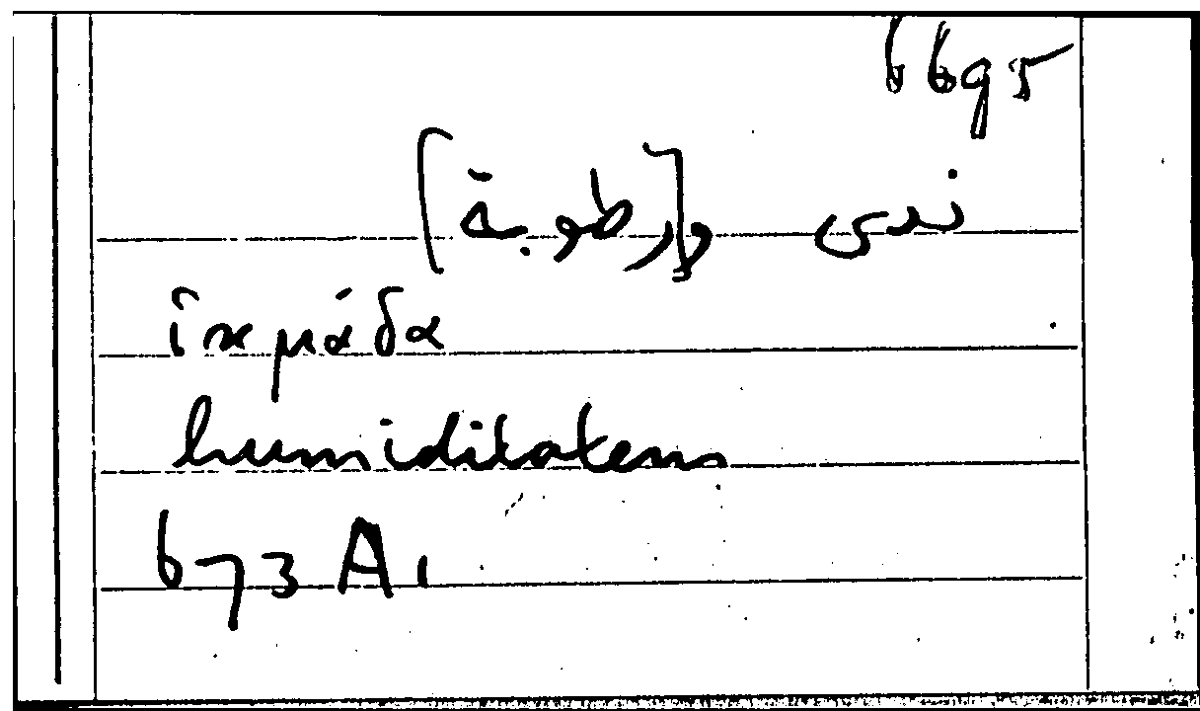 ندى [ورطوبة]
ἰκμάδα
humiditatem
673 A1